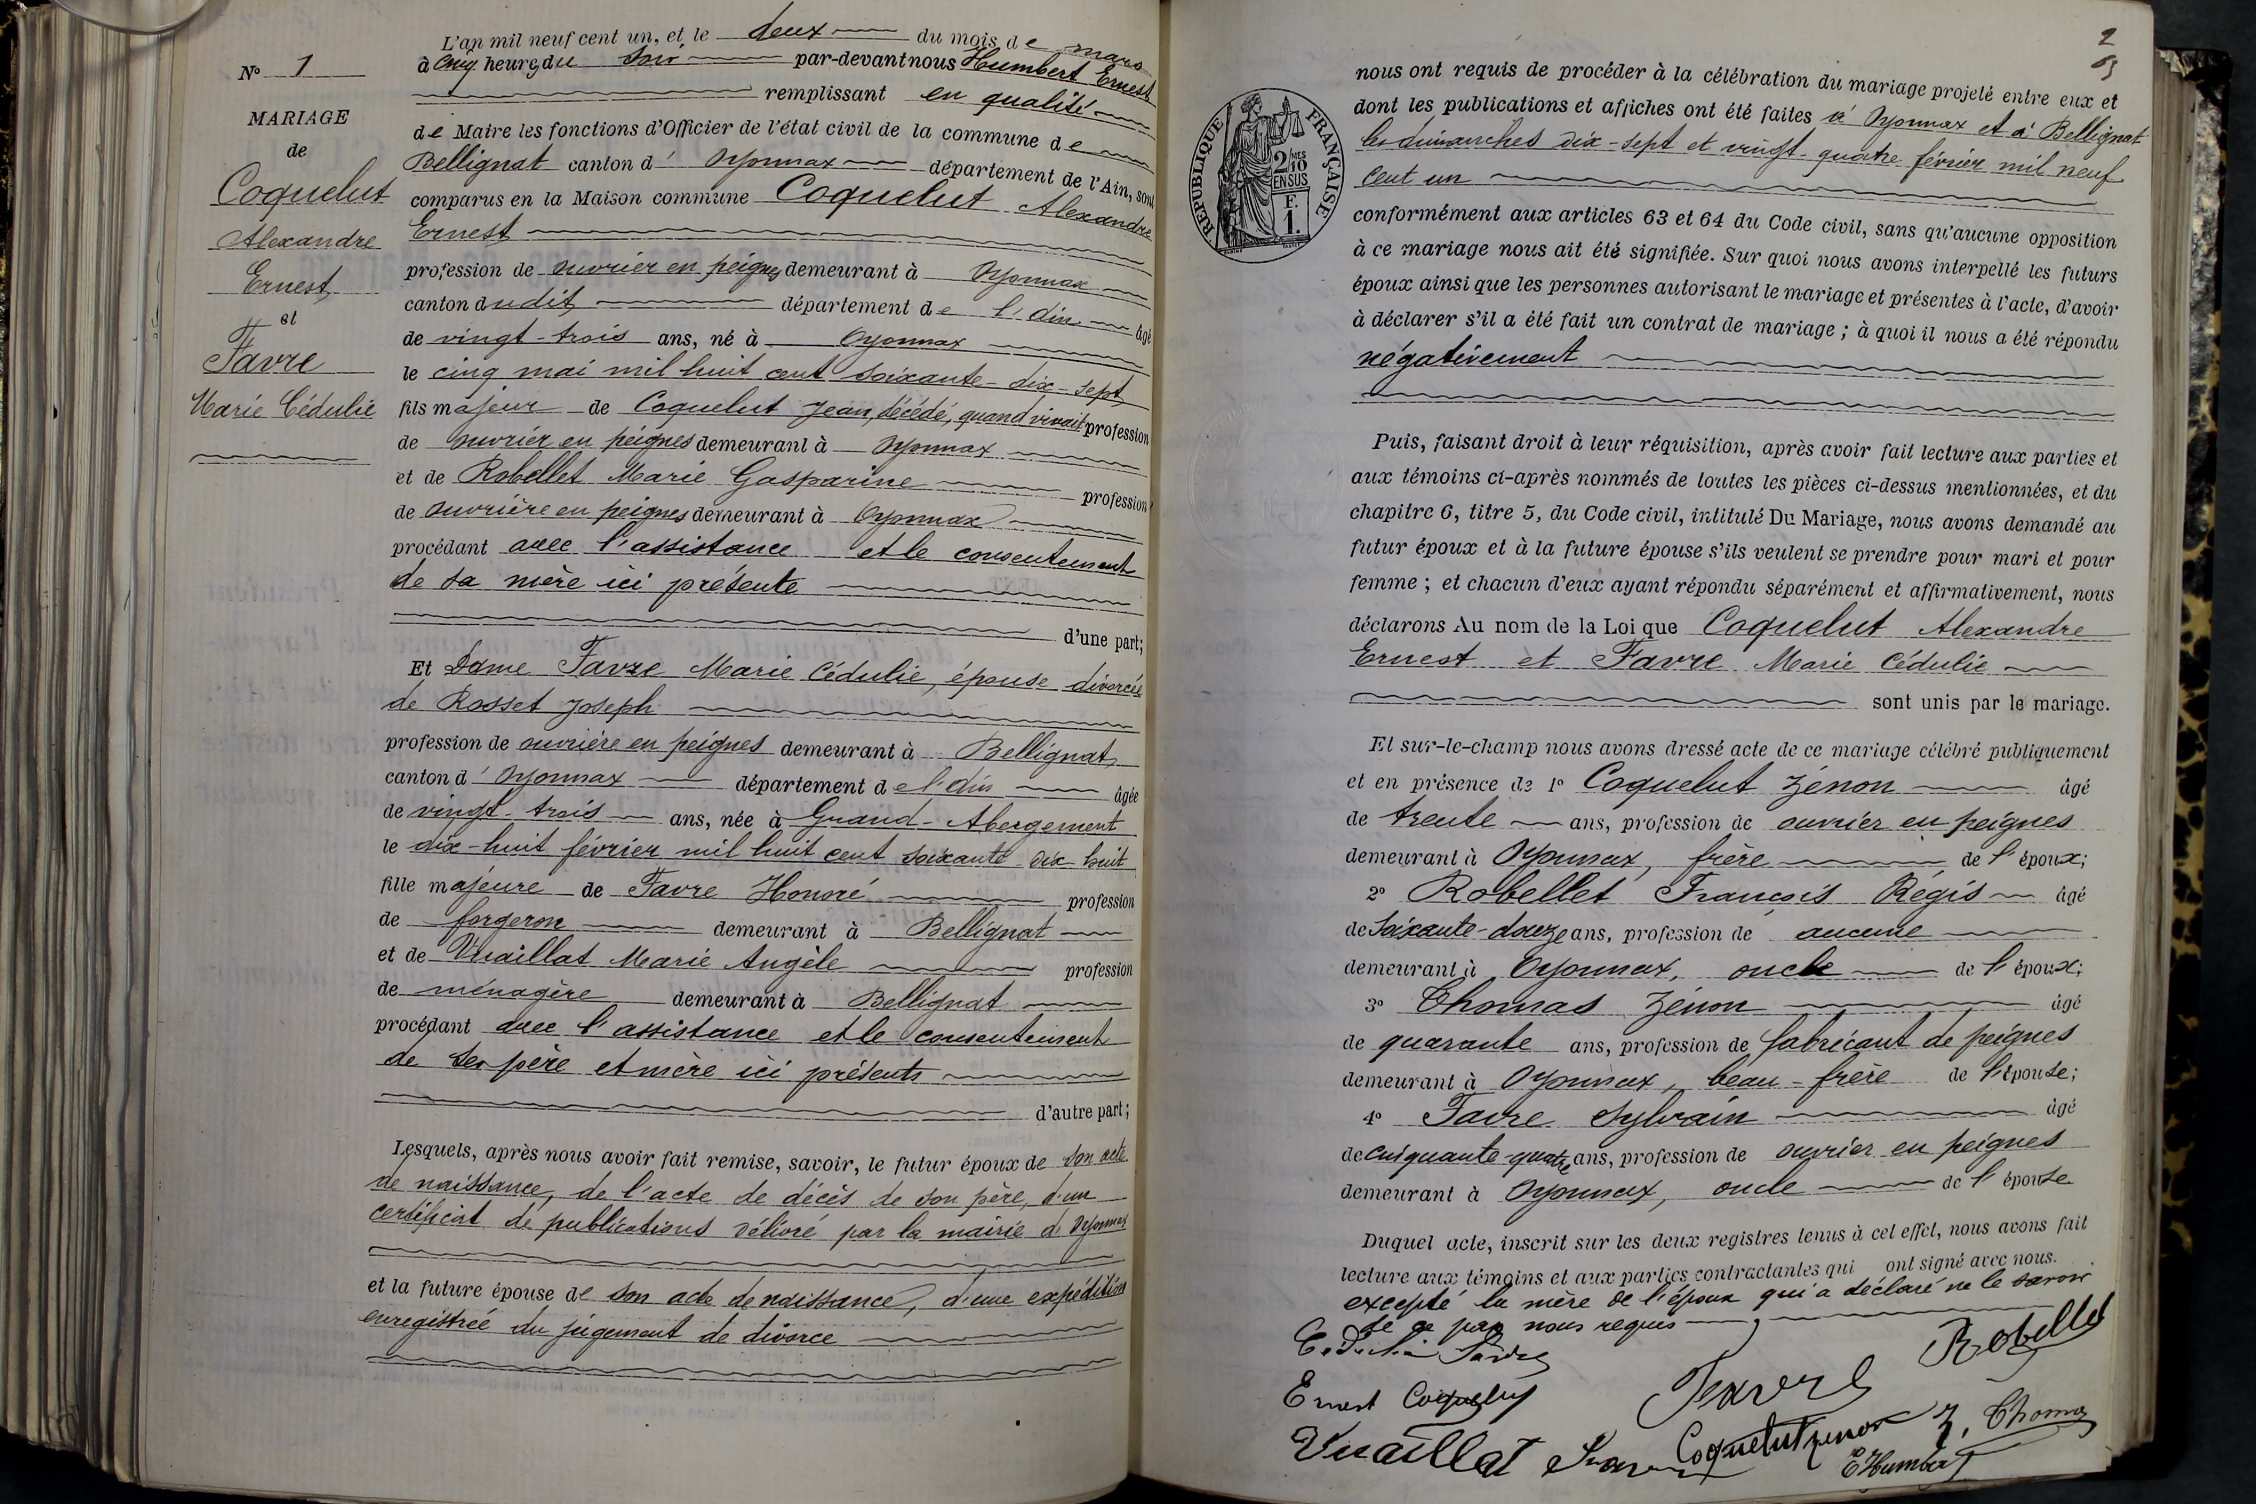 N° 1
MARIAGE
de
Coquelut
Alexandre
Ernest
et
Favre
Marie Cédulie
L'an mil neuf cent un, et le deux du mois de mars
à cinq heures du soir par-devant nous Humbert Ernest
remplissant en qualité
de Maire les fonctions d'Officier de l'état civil de la commune de
Bellignat canton d' Oyonnax département de l'Ain, sont
comparus en la Maison commune Coquelut Alexandre
Ernest
profession de ouvrier en peignes demeurant à Oyonnax
canton dudit département de l'Ain âgé
de vingt-trois ans, né à Oyonnax
le cinq mai mil huit cent soixante-dix-sept
fils majeur de Coquelut Jean, décédé, quand vivait profession
de ouvrier en peignes demeurant à Oyonnax
et de Robellet Marie Gasparine profession
de ouvrière en peignes demeurant à Oyonnax
procédant avec l'assistance et le consentement
de sa mère ici présente
d'une part;
Et Dame Favre Marie Cédulie, épouse divorcée
de Rosset Joseph
profession de ouvrière en peignes demeurant à Bellignat
canton d' Oyonnax département de l'Ain âgée
de vingt-trois ans, née à Grand-Abergement
le dix-huit février mil huit cent soixante dix-huit
fille majeure de Favre Honoré profession
de forgeron demeurant à Bellignat
et de Vuaillat Marie Angèle profession
de ménagère demeurant à Bellignat
procédant avec l'assistance et le consentement
de ses père et mère ici présents
d'autre part;
Lesquels, après nous avoir fait remise, savoir, le futur époux de son acte
de naissance, de l'acte de décès de son père, d'un
certificat de publications délivré par la mairie d'Oyonnax
et la future épouse de son acte de naissance, d'une expédition
enregistrée du jugement de divorce
2
REPUBLIQUE FRANÇAISE
2/MES
10
EN SUS
F.
1.
nous ont requis de procéder à la célébration du mariage projeté entre eux et
dont les publications et affiches ont été faites à Oyonnax et à Bellignat
les dimanches dix-sept et vingt-quatre février mil neuf
cent un
conformément aux articles 63 et 64 du Code civil, sans qu'aucune opposition
à ce mariage nous ait été signifiée. Sur quoi nous avons interpellé les futurs
époux ainsi que les personnes autorisant le mariage et présentes à l'acte, d'avoir
à déclarer s'il a été fait un contrat de mariage ; à quoi il nous a été répondu
négativement
Puis, faisant droit à leur réquisition, après avoir fait lecture aux parties et
aux témoins ci-après nommés de toutes les pièces ci-dessus mentionnées, et du
chapitre 6, titre 5, du Code civil, intitulé Du Mariage, nous avons demandé au
futur époux et à la future épouse s'ils veulent se prendre pour mari et pour
femme ; et chacun d'eux ayant répondu séparément et affirmativement, nous
déclarons Au nom de la Loi que Coquelut Alexandre
Ernest et Favre Marie Cédulie
sont unis par le mariage.
Et sur-le-champ nous avons dressé acte de ce mariage célébré publiquement
et en présence de 1° Coquelut Zénon âgé
de trente ans, profession de ouvrier en peignes
demeurant à Oyonnax, frère de l'époux;
2° Robellet François Régis âgé
de soixante-douze ans, profession de aucune
demeurant à Oyonnax, oncle de l'époux;
3° Thomas Zénon âgé
de quarante ans, profession de fabricant de peignes
demeurant à Oyonnax, beau-frère de l'épouse;
4° Favre Sylvain âgé
de cinquante-quatre ans, profession de ouvrier en peignes
demeurant à Oyonnax, oncle de l'épouse
Duquel acte, inscrit sur les deux registres tenus à cet effet, nous avons fait
lecture aux témoins et aux parties contractantes qui ont signé avec nous.
excepté la mère de l'époux qui a déclaré ne le savoir
de ce par nous requis
Cédulie Favre
Robellet
Ernest Coquelut
Favre
Vuaillat Favre Coquelut Zénon Z. Thomas
E Humbert